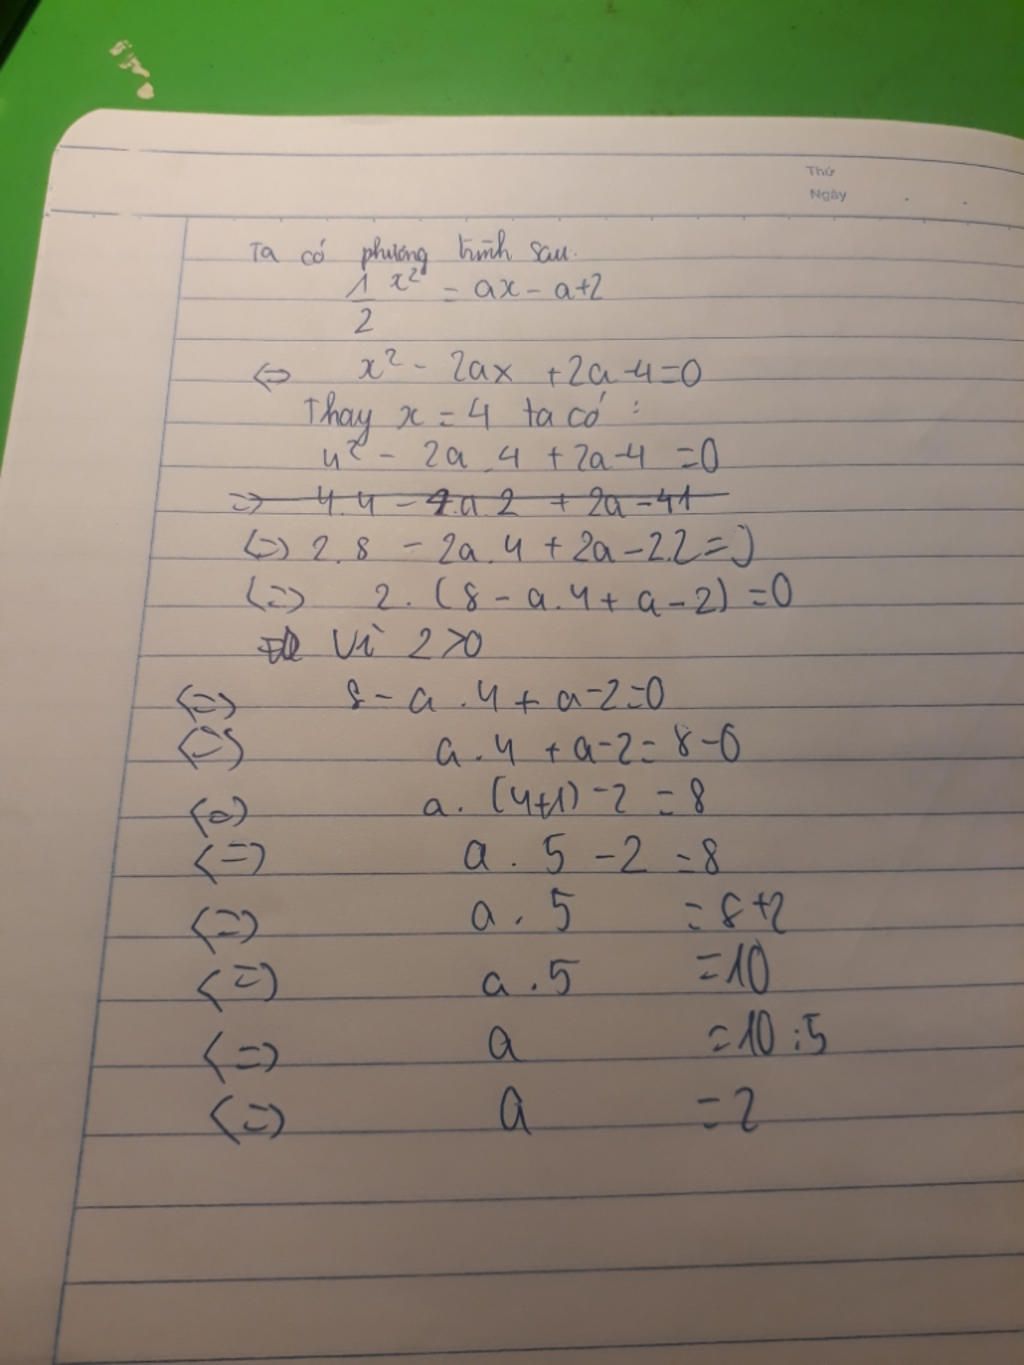 Thứ
Ngày
Ta có phương trình sau.
1/2 x² = ax - a+2
<=> x² - 2ax + 2a-4=0
Thay x = 4 ta có :
4² - 2a.4 + 2a-4 =0
<=> 2.8 - 2a.4 + 2a-2.2=0
<=> 2.(8-a.4+a-2)=0
Vì 2>0
<=> 8-a.4+a-2=0
<=> a.4+a-2=8-0
<=> a.(4+1)-2=8
<=> a.5-2=8
<=> a.5 =8+2
<=> a.5 =10
<=> a =10:5
<=> a =2